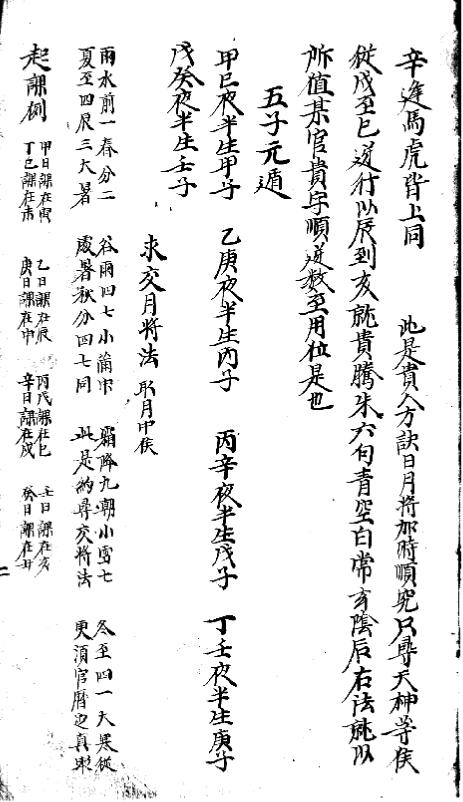 辛逢馬虎皆上同　此是貴人方訣日月將加時順究只尋天神等候
從戌至巳逆行以辰到亥就貴騰朱六勾青空白常玄陰后右法就以
所值某官貴字順逆数至用位是也
五子元遁
甲巳夜半生甲子　乙庚夜半生丙子　丙辛夜半生戊子　丁壬夜半生庚子
戊癸夜半生壬子
求交月將法　取月中候
雨水前一春分二　谷雨四七小滿　霜降九朝小雪七　冬至四一大寒從
夏至四辰三大暑　處暑秋分四七同　此是約尋交將法　更須官曆定真
起課例　甲日課在寅　乙日課在辰　丙戊課在巳　壬日課在亥
丁巳課在未　庚日課在申　辛日課在戌　癸日課在丑